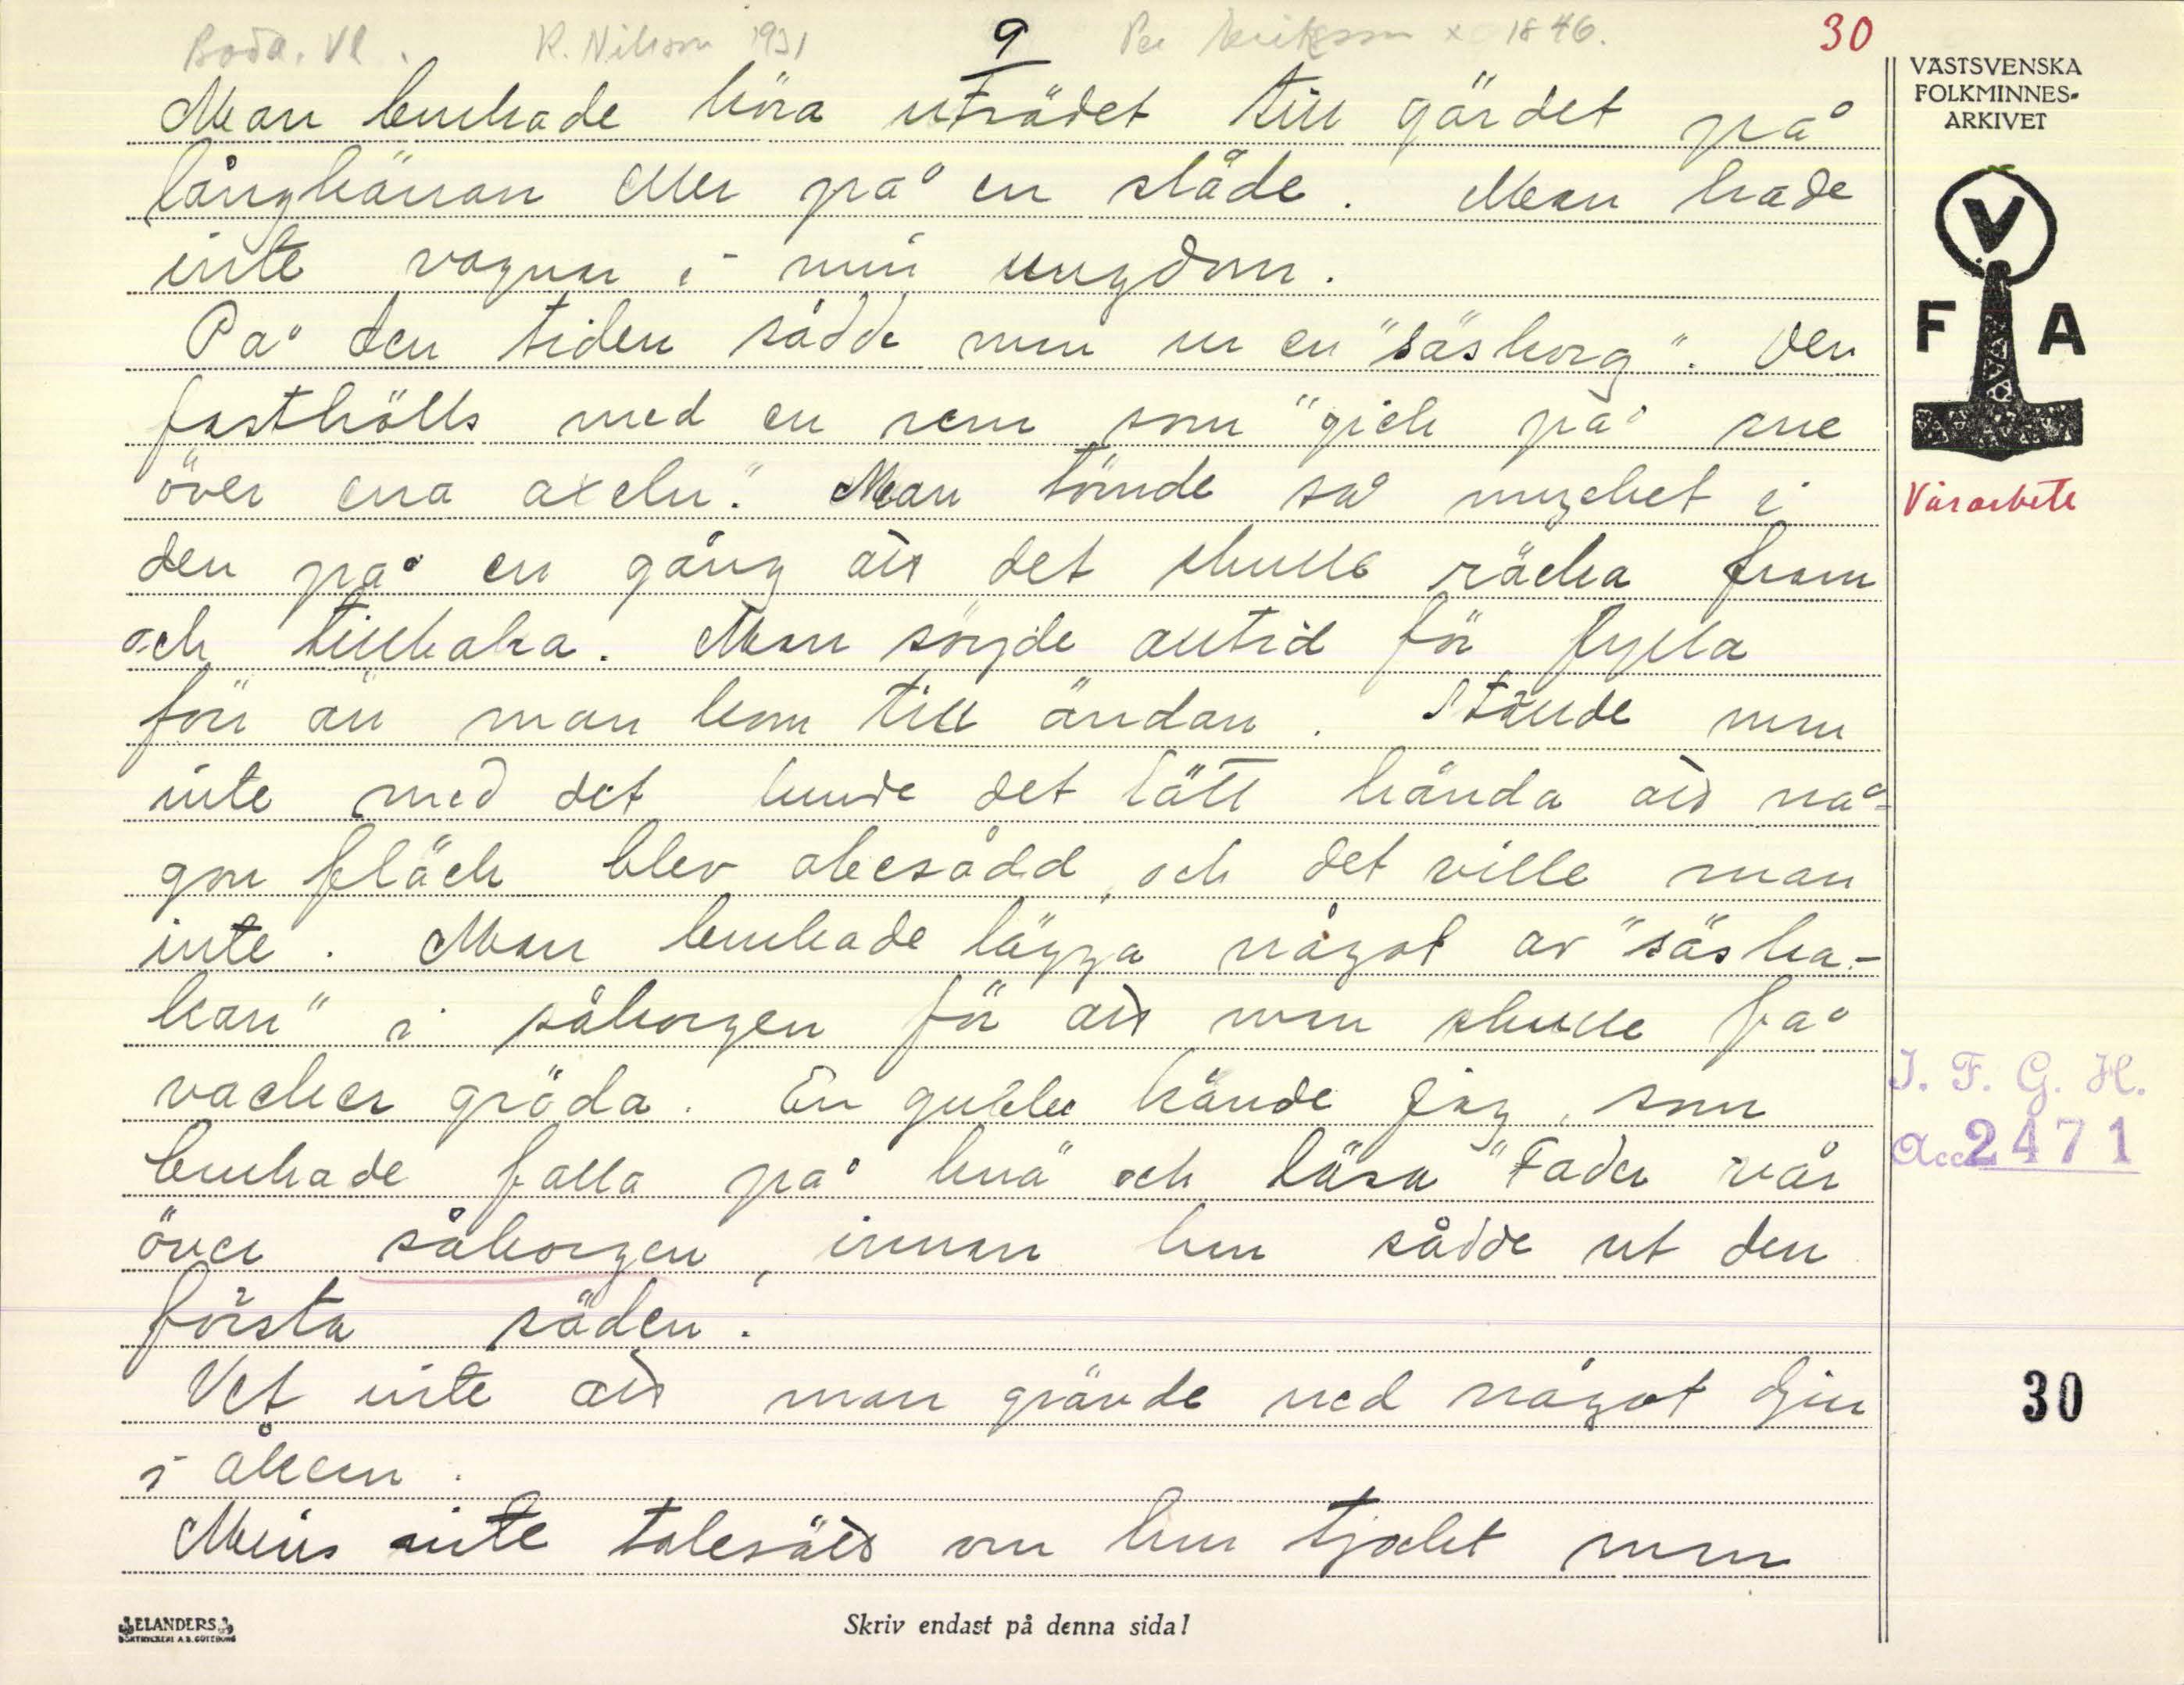 Boda. Vl. R. Nilsson 1931 9 Per Eriksson x 1846. 30
Man brukade köra uträdet till gärdet på
långkärran eller på en släde. Man hade
inte vagnar i min ungdom.
På den tiden sådde man ur en "säskorg". Den
fasthölls med en rem som "gick på sne
över ena axeln." Man tömde så mycket i
den på en gång att det skulle räcka fram
och tillbaka. Man sörjde alltid för fylla
förr än man kom till ändan. Stämde man
inte med det kunde det lätt hända att nå-
gon fläck blev obesådd, och det ville man
inte. Man brukade lägga något av "säska-
kan" i såkorgen för att man skulle få
vacker gröda. En gubbe kände jag, som
brukade falla på knä och läsa "Fader vår
över såkorgen, innan han sådde ut den
första säden.
Vet inte att man grävde ned något djur
i åkern.
Minns inte talesätt om hur tjockt man
VÄSTSVENSKA
FOLKMINNES-
ARKIVET
V
F A
Vårarbete
I. F. G. H.
Acc 2471
30
ELANDERS
BOKTRYCKERI A.B. GÖTEBORG
Skriv endast på denna sida!